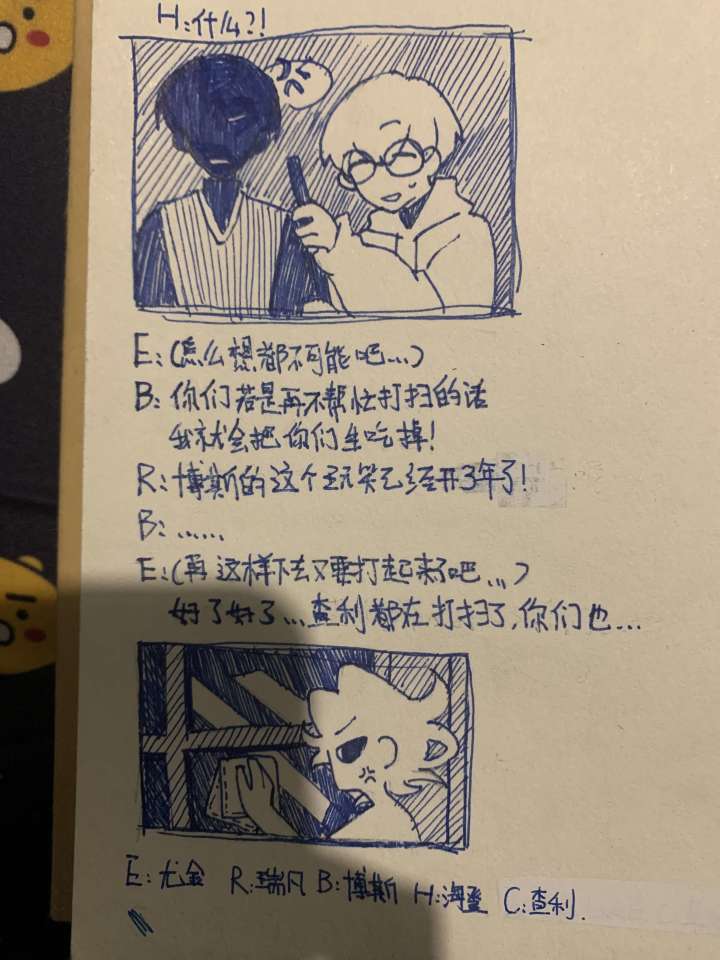 H:什么?!
E:(怎么想都不可能吧...)
B:你们若是再不帮忙打扫的话
我就会把你们生吃掉!
R:博斯的这个玩笑已经开3年了!
B:......
E:(再这样下去又要打起来了吧...)
好了好了...查利都在打扫了,你们也...
E:尤金 R:瑞凡 B:博斯 H:海登 C:查利.